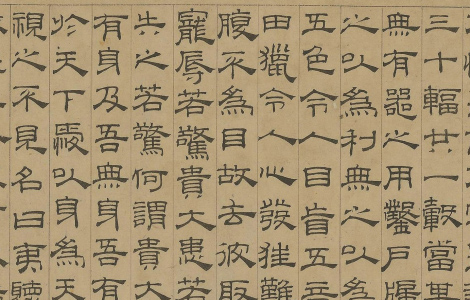 三十輻共一轂當其
無有器之用鑿戶牖
之以為利無之以為
五色令人目盲五音
田獵令人心發狂難
腹不為目故去彼取
寵辱若驚貴大患若
失之若驚何謂貴大
有身及吾無身吾有
於天下愛以身為天
視之不見名曰夷聽